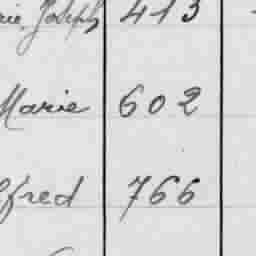 Joseph 413
Marie 602
fred 766